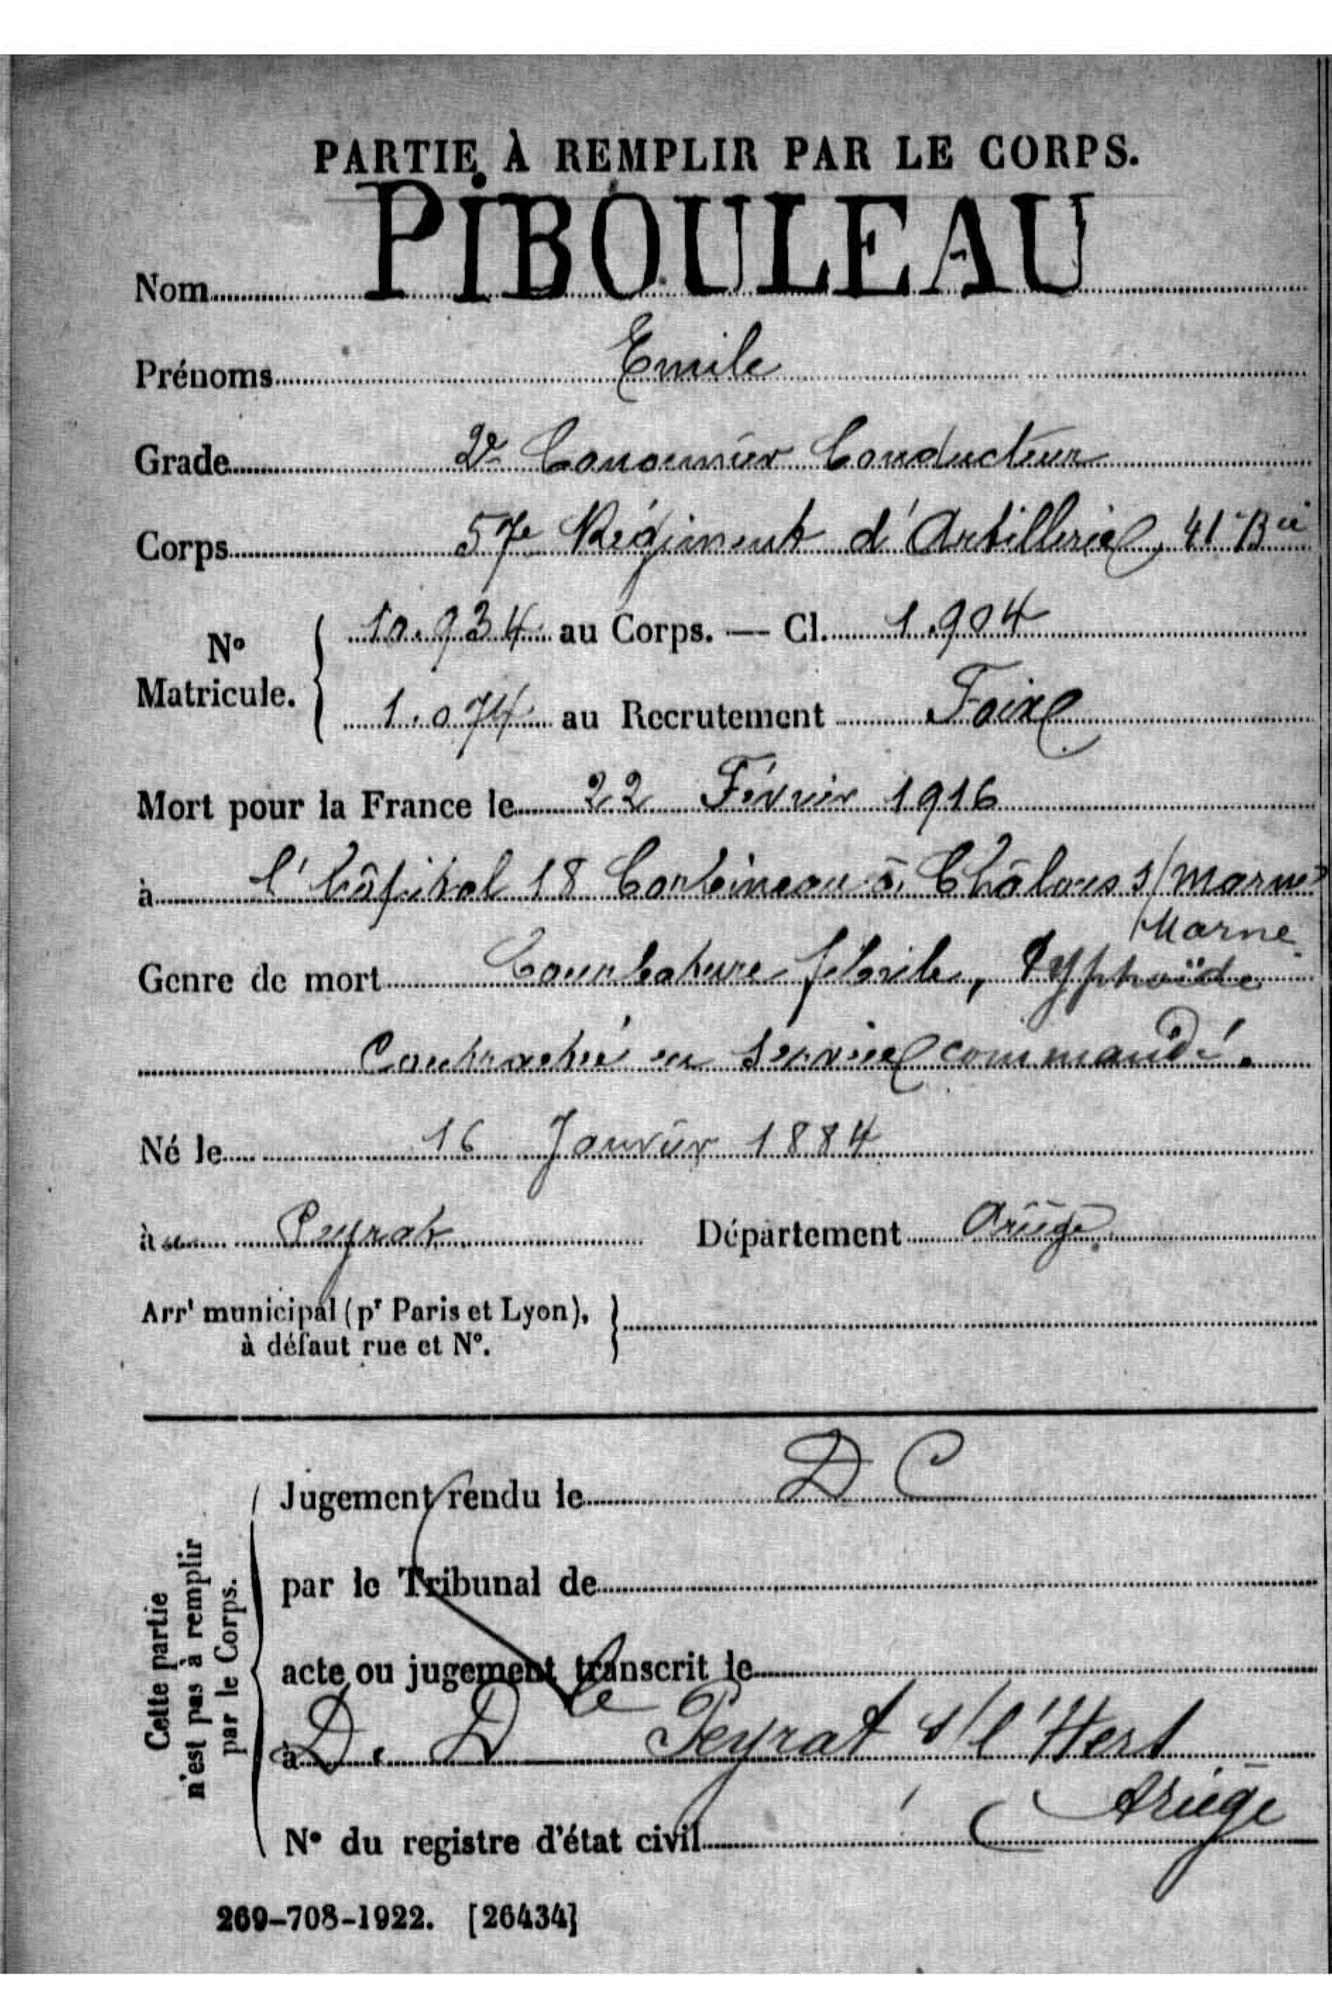 PARTIE À REMPLIR PAR LE CORPS.
Nom PIBOULEAU
Prénoms Emile
Grade 2e Canonnier Conducteur
Corps 57e Régiment d'Artillerie, 41 Bie
No Matricule. { 10.934 au Corps. — Cl. 1.904
1.074 au Recrutement Foix
Mort pour la France le 22 Février 1916
à l'hôpital 18 Corbineau à Châlons s/Marne
Marne
Genre de mort Courbature fébrile, Typhoïde
Contractée en service commandé.
Né le 16 Janvier 1884
à Peyrat Département Ariège.
Arrt municipal (pr Paris et Lyon), à défaut rue et No. }
Cette partie n'est pas à remplir par le Corps.
Jugement rendu le D C
par le Tribunal de
acte ou jugement transcrit le
le
à D. D Peyrat s/l'Hers
Ariège
No du registre d'état civil
269-708-1922. [26434]